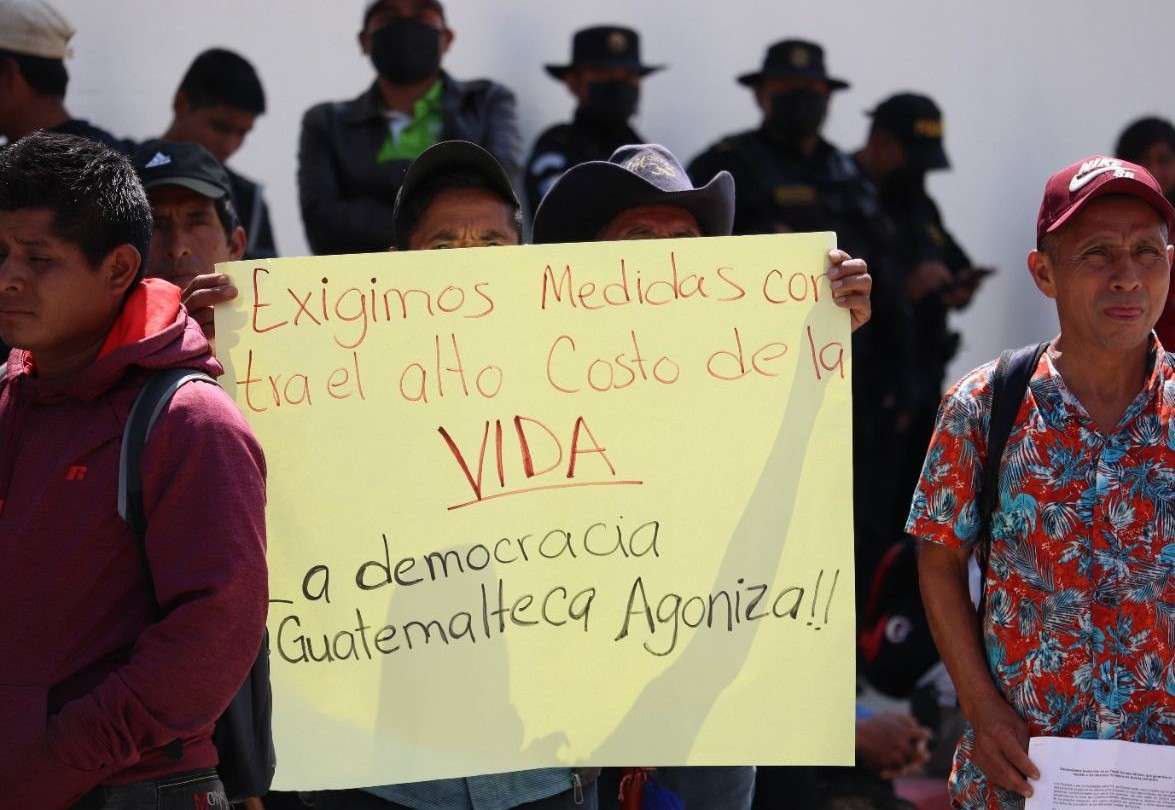 Exigimos Medidas con
tra el alto Costo de la
VIDA
La democracia
Guatemalteca Agoniza!!
NIKE